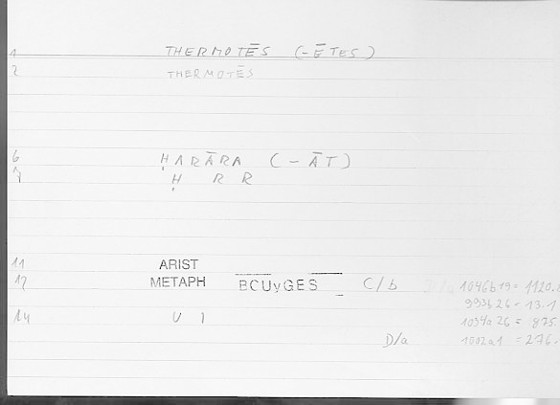 1 THERMOTĒS (-ĒTES)
2 THERMOTĒS
6 ḤARĀRA (-ĀT)
7 Ḥ R R
11 ARIST
12 METAPH BCUvGES C/b 1046b19 = 1120.
993b26 = 13.1
14 U 1 1034a26 = 875
D/a 1002a1 = 276.